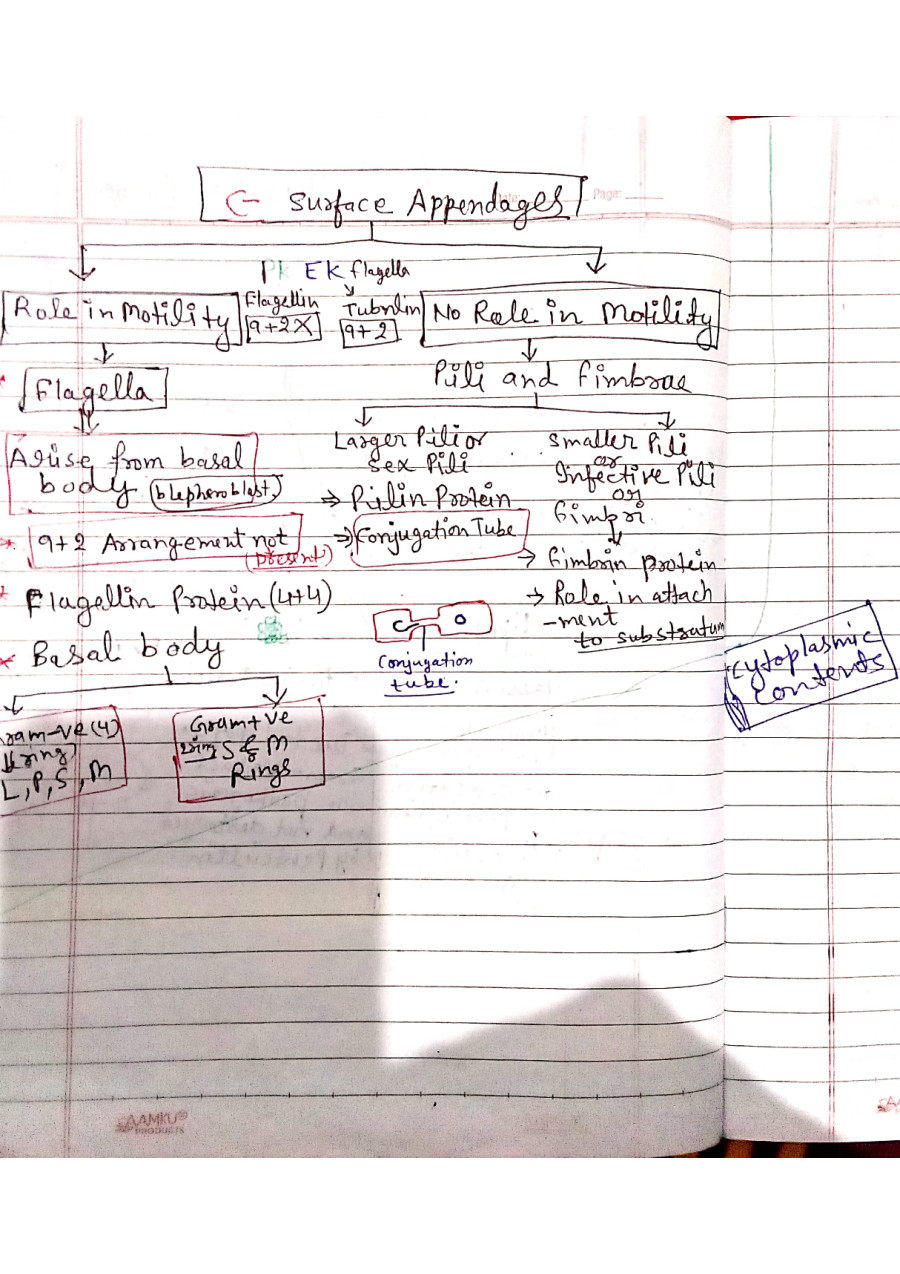 C- Surface Appendages
Page:
PK EK flagella
Role in Motility
Flagellin
9+2X
Tubulin
9+2
No Role in Motility
Flagella
Pili and fimbrae
Arise from basal
body (blepheroblast)
9+2 Arrangement not
(present)
Flagellin Protein (4+4)
Basal body
ram-ve (4)
ring
L, P, S, M
Gram+ve
2ring S & M
Rings
Larger Pili or
Sex Pili
⇒ Pilin Protein
⇒ Conjugation Tube
Conjugation
tube.
Smaller Pili
or
Infective Pili
or
fimbri
→ fimbrin protein
→ Role in attach
-ment
to substratum
Cytoplasmic
Contents
AAMKU®
PRODUCTS